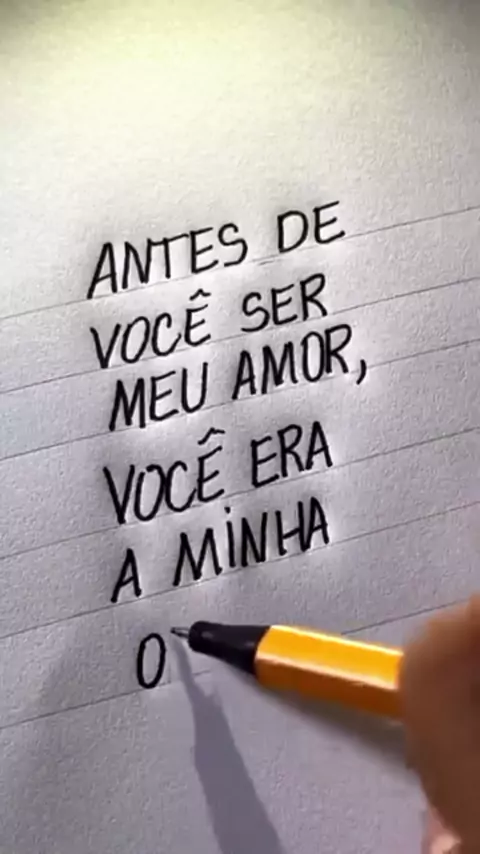 ANTES DE
VOCÊ SER
MEU AMOR,
VOCÊ ERA
A MINHA
O